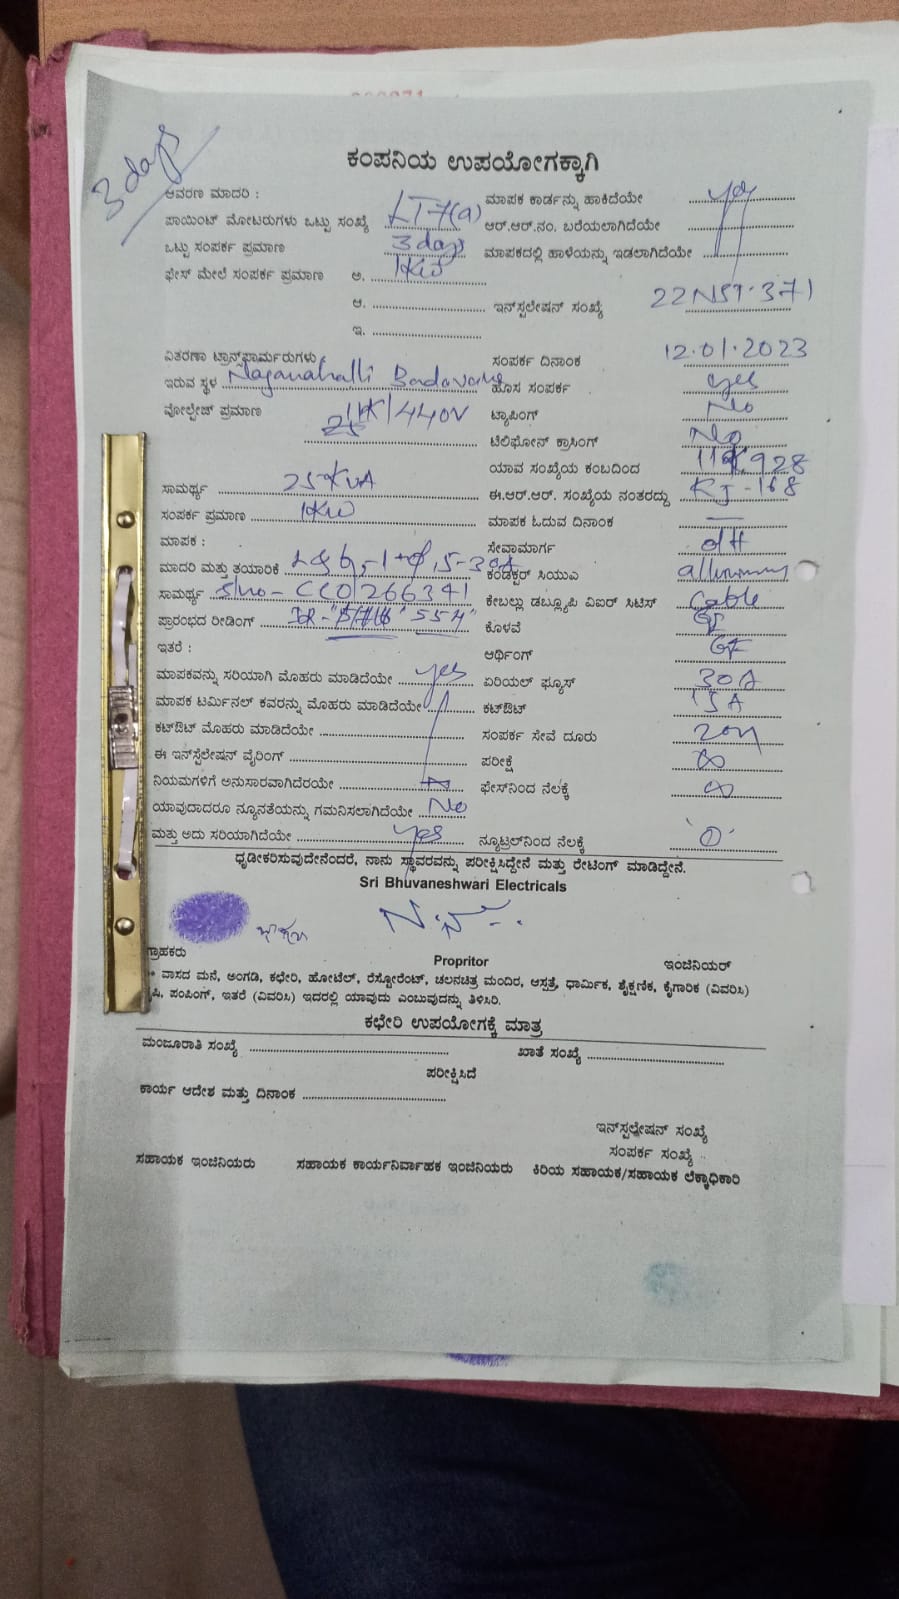 3 days
ಕಂಪನಿಯ ಉಪಯೋಗಕ್ಕಾಗಿ
ಆವರಣ ಮಾದರಿ : ಮಾಪಕ ಕಾರ್ಡನ್ನು ಹಾಕಿದೆಯೇ yes
ಪಾಯಿಂಟ್ ಮೋಟರುಗಳು ಒಟ್ಟು ಸಂಖ್ಯೆ LT-7(a) ಆರ್.ಆರ್.ನಂ. ಬರೆಯಲಾಗಿದೆಯೇ
ಒಟ್ಟು ಸಂಪರ್ಕ ಪ್ರಮಾಣ 3 days ಮಾಪಕದಲ್ಲಿ ಹಾಳೆಯನ್ನು ಇಡಲಾಗಿದೆಯೇ
ಫೇಸ್ ಮೇಲೆ ಸಂಪರ್ಕ ಪ್ರಮಾಣ ಅ. 1KW
ಆ. ಇನ್‌ಸ್ಟಲೇಷನ್ ಸಂಖ್ಯೆ 22NST.371
ಇ.
ವಿತರಣಾ ಟ್ರಾನ್ಸ್‌ಫಾರ್ಮರುಗಳು ಸಂಪರ್ಕ ದಿನಾಂಕ 12.01.2023
ಇರುವ ಸ್ಥಳ Naganahalli Badavane ಹೊಸ ಸಂಪರ್ಕ yes
ವೋಲ್ಟೇಜ್ ಪ್ರಮಾಣ 11K/440V ಟ್ಯಾಪಿಂಗ್ No
ಟೆಲಿಫೋನ್ ಕ್ರಾಸಿಂಗ್ No
ಯಾವ ಸಂಖ್ಯೆಯ ಕಂಬದಿಂದ 928
ಸಾಮರ್ಥ್ಯ 25KVA ಈ.ಆರ್.ಆರ್. ಸಂಖ್ಯೆಯ ನಂತರದ್ದು RJ-168
ಸಂಪರ್ಕ ಪ್ರಮಾಣ 1KW ಮಾಪಕ ಓದುವ ದಿನಾಂಕ —
ಮಾಪಕ : ಸೇವಾಮಾರ್ಗ OH
ಮಾದರಿ ಮತ್ತು ತಯಾರಿಕೆ L&G, 5-30A ಕಂಡಕ್ಟರ್ ಸಿಯುಎ
ಸಾಮರ್ಥ್ಯ S/no - CCO1266341 ಕೇಬಲ್ಲು ಡಬ್ಲ್ಯೂಪಿ ವಿಐರ್ ಸಿಟಿಸ್ Cable
ಪ್ರಾರಂಭದ ರೀಡಿಂಗ್ IR - "554" ಕೊಳವೆ GI
ಇತರೆ : ಆರ್ಥಿಂಗ್ GI
ಮಾಪಕವನ್ನು ಸರಿಯಾಗಿ ಮೊಹರು ಮಾಡಿದೆಯೇ yes ಏರಿಯಲ್ ಫ್ಯೂಸ್ 30A
ಮಾಪಕ ಟರ್ಮಿನಲ್ ಕವರನ್ನು ಮೊಹರು ಮಾಡಿದೆಯೇ ಕಟ್‌ಔಟ್ 15A
ಕಟ್‌ಔಟ್ ಮೊಹರು ಮಾಡಿದೆಯೇ ಸಂಪರ್ಕ ಸೇವೆ ದೂರು 20M
ಈ ಇನ್‌ಸ್ಟೆಲೇಷನ್ ವೈರಿಂಗ್ ಪರೀಕ್ಷೆ ∞
ನಿಯಮಗಳಿಗೆ ಅನುಸಾರವಾಗಿದೆರಯೇ ಫೇಸ್‌ನಿಂದ ನೆಲಕ್ಕೆ ∞
ಯಾವುದಾದರೂ ನ್ಯೂನತೆಯನ್ನು ಗಮನಿಸಲಾಗಿದೆಯೇ No
ಮತ್ತು ಅದು ಸರಿಯಾಗಿದೆಯೇ yes ನ್ಯೂಟ್ರಲ್‌ನಿಂದ ನೆಲಕ್ಕೆ '0'
ಧೃಡೀಕರಿಸುವುದೇನೆಂದರೆ, ನಾನು ಸ್ಥಾವರವನ್ನು ಪರೀಕ್ಷಿಸಿದ್ದೇನೆ ಮತ್ತು ರೇಟಿಂಗ್ ಮಾಡಿದ್ದೇನೆ.
Sri Bhuvaneshwari Electricals
ಗ್ರಾಹಕರು Propritor ಇಂಜಿನಿಯರ್
** ವಾಸದ ಮನೆ, ಅಂಗಡಿ, ಕಛೇರಿ, ಹೋಟೆಲ್, ರೆಸ್ಟೋರೆಂಟ್, ಚಲನಚಿತ್ರ ಮಂದಿರ, ಆಸ್ಪತ್ರೆ, ಧಾರ್ಮಿಕ, ಶೈಕ್ಷಣಿಕ, ಕೈಗಾರಿಕ (ವಿವರಿಸಿ)
ಪಂಪಿಂಗ್, ಇತರೆ (ವಿವರಿಸಿ) ಇದರಲ್ಲಿ ಯಾವುದು ಎಂಬುವುದನ್ನು ತಿಳಿಸಿರಿ.
ಕಛೇರಿ ಉಪಯೋಗಕ್ಕೆ ಮಾತ್ರ
ಮಂಜೂರಾತಿ ಸಂಖ್ಯೆ ಖಾತೆ ಸಂಖ್ಯೆ
ಪರೀಕ್ಷಿಸಿದೆ
ಕಾರ್ಯ ಆದೇಶ ಮತ್ತು ದಿನಾಂಕ
ಇನ್‌ಸ್ಟಲೇಷನ್ ಸಂಖ್ಯೆ
ಸಂಪರ್ಕ ಸಂಖ್ಯೆ
ಸಹಾಯಕ ಇಂಜಿನಿಯರು ಸಹಾಯಕ ಕಾರ್ಯನಿರ್ವಾಹಕ ಇಂಜಿನಿಯರು ಕಿರಿಯ ಸಹಾಯಕ/ಸಹಾಯಕ ಲೆಕ್ಕಾಧಿಕಾರಿ